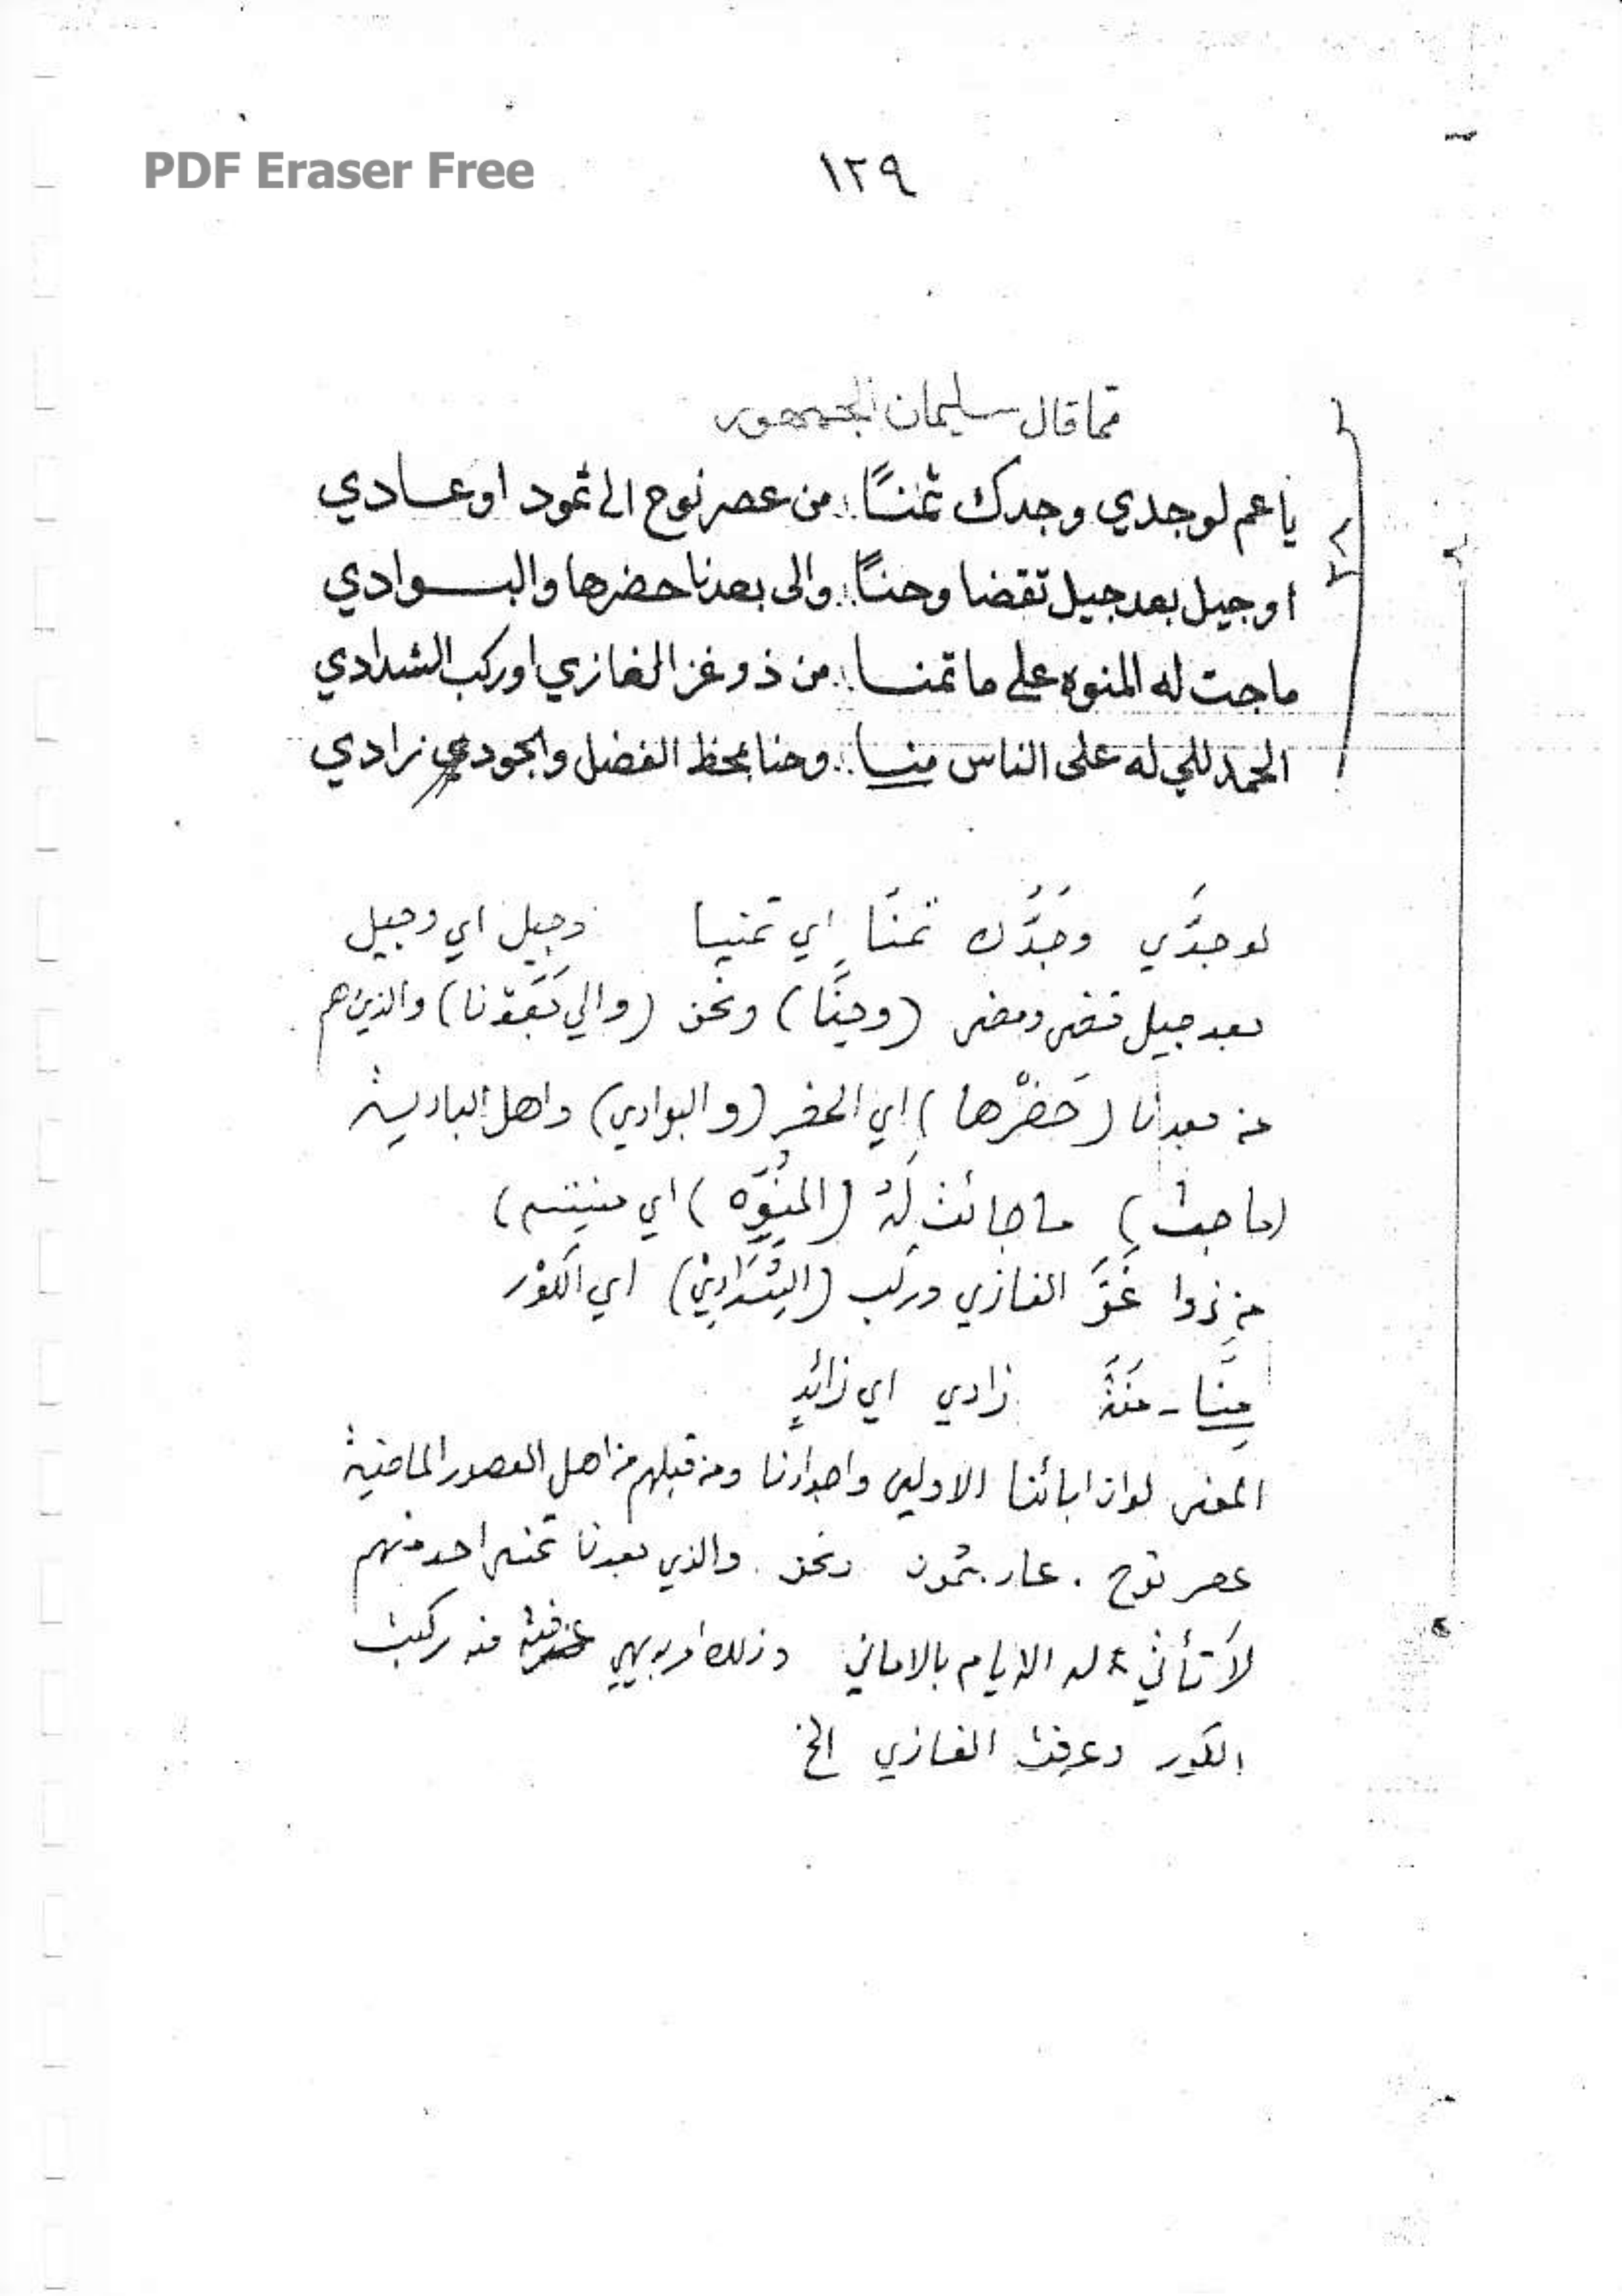 PDF Eraser Free
١٢٩
مما قال سليمان الجمهور
يا عم لو جدي وجدك تمنًا .. من عصر نوح الى ثمود او عادي
او جيل بعد جيل تقضا وحنًا .. والى بعدنا حضرها والبوادي
ما جت له المنوه على ما تمنا .. من ذو غز الغازي او ركب الشدادي
الحمد للي له على الناس منا .. وحنا بحظ الفضل والجود زادي
لو جدَّي وجَدُّك تمنَّا اي تمنيا وجيل اي وجيل
بعد جيل تقضى ومضى (وحِنَّا) ونحن (والي بَعَدْنا) والذين هم
من بعدنا (حَضَرْها) اي الحضر (والبوادي) واهل البادية
(ما جت) ما جائت لَهُ (المِنُوَه) اي منيته)
من ذوا غَزَّ الغازي وركب (الشِّدَادِيْ) اي الكَوْر
مِنَّا - مَنَّةً زادي اي زائدٍ
المعنى لو ان ابائنا الاولين واجدادنا ومن قبلهم من اهل العصور الماضية
عصر نوح . عاد . ثمود ونحن . والذي بعدنا تمنى احد منهم
لا تأتي له الايام بالاماني وذلك امر بديهي منذ ركبت
الكور وعرفت الغازي الخ